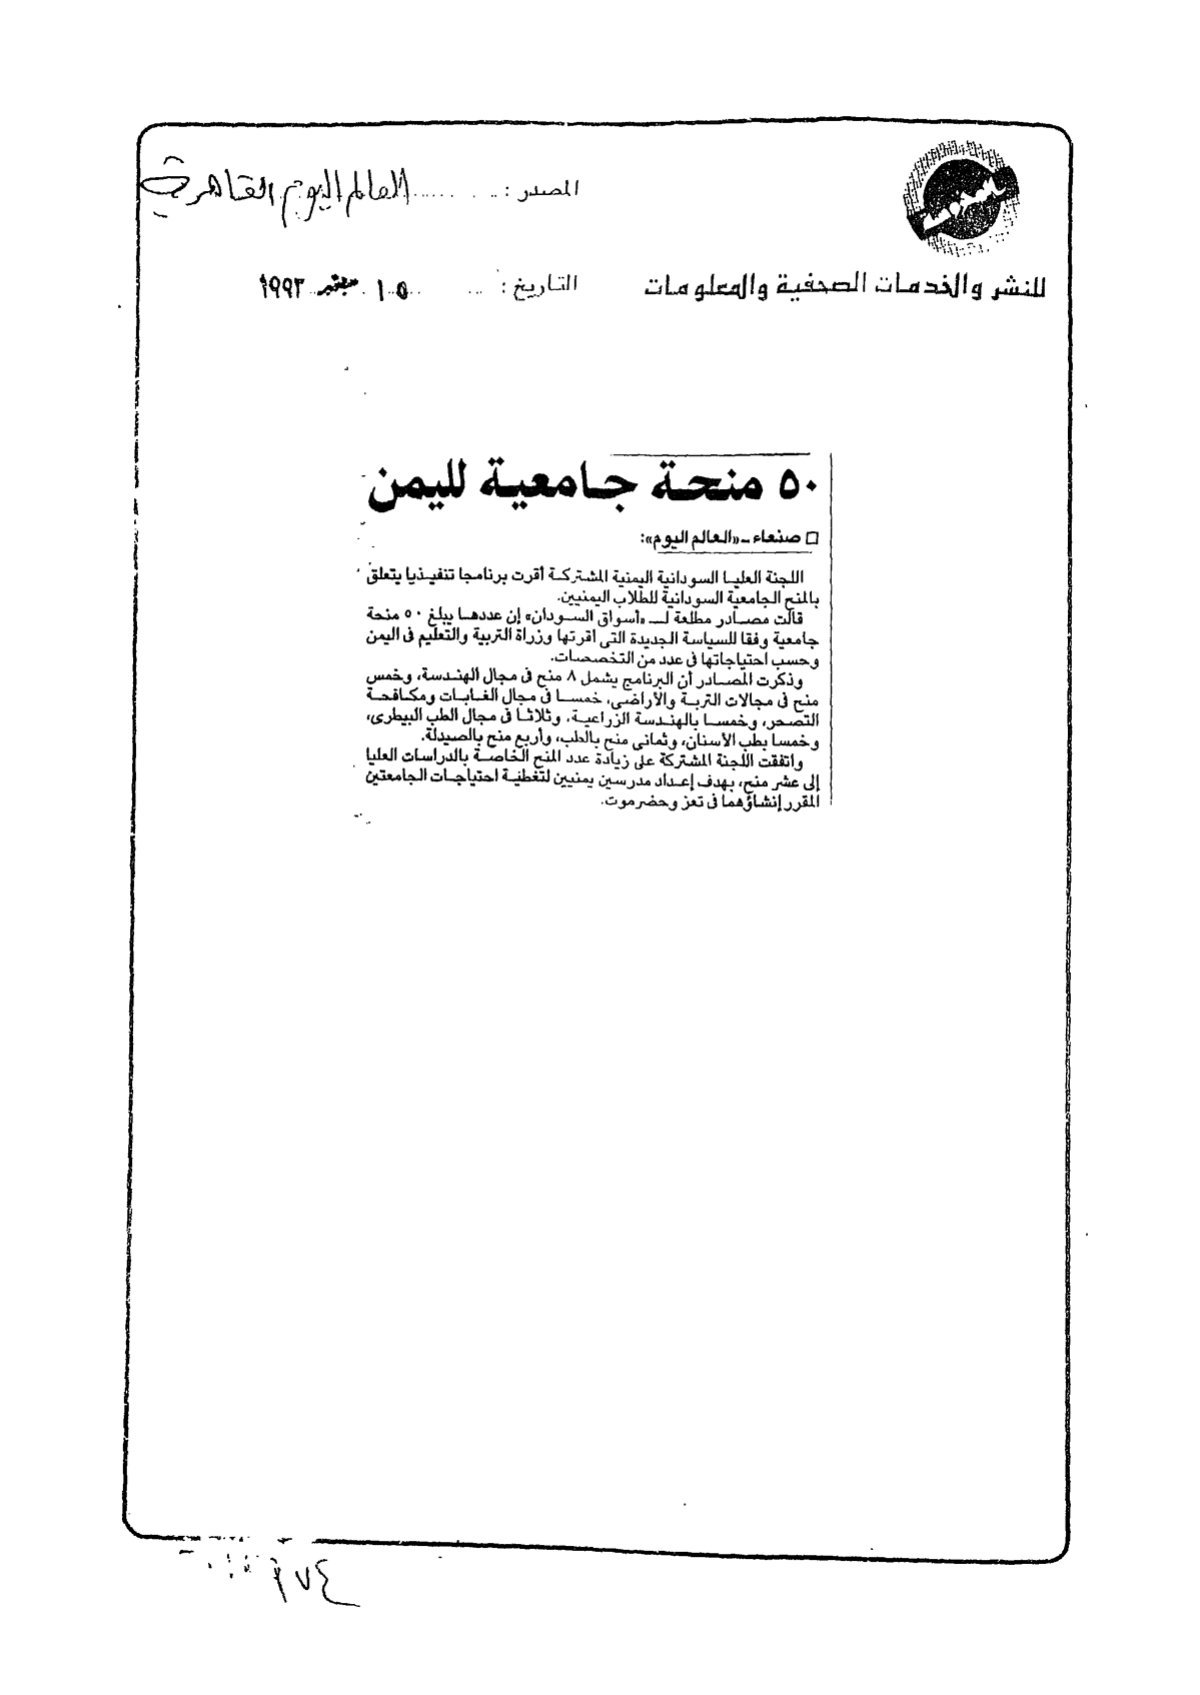 المصدر : العالم اليوم القاهرة
للنشر والخدمات الصحفية والمعلومات
التاريخ : ١٥ سبتمبر ١٩٩٢
٥٠ منحة جامعية لليمن
□ صنعاء ـ «العالم اليوم»:
اللجنة العليا السودانية اليمنية المشتركة أقرت برنامجا تنفيذيا يتعلق
بالمنح الجامعية السودانية للطلاب اليمنيين.
قالت مصادر مطلعة لـ «أسواق السودان» إن عددها يبلغ ٥٠ منحة
جامعية وفقا للسياسة الجديدة التى أقرتها وزراة التربية والتعليم فى اليمن
وحسب احتياجاتها فى عدد من التخصصات.
وذكرت المصادر أن البرنامج يشمل ٨ منح فى مجال الهندسة، وخمس
منح فى مجالات التربة والأراضى، خمسا فى مجال الغابات ومكافحة
التصحر، وخمسا بالهندسة الزراعية، وثلاثا فى مجال الطب البيطرى،
وخمسا بطب الأسنان، وثمانى منح بالطب، وأربع منح بالصيدلة.
واتفقت اللجنة المشتركة على زيادة عدد المنح الخاصة بالدراسات العليا
إلى عشر منح، بهدف إعداد مدرسين يمنيين لتغطية احتياجات الجامعتين
المقرر إنشاؤهما فى تعز وحضرموت.